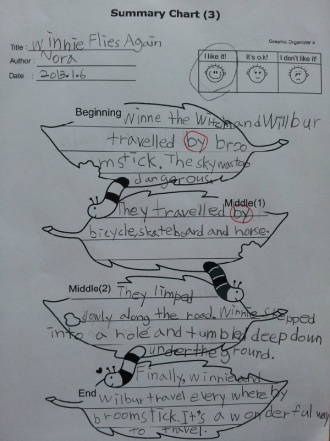 Summary Chart (3)
Graphic Organizer 4
Title : Winnie Flies Again
Author : Nora
Date : 2013.1.6
I like it!
It's o.k!
I don't like it!
Beginning
Winne the Witch and Wilbur
travelled by broo
mstick. The sky was too
dangerous.
Middle(1)
They travelled by
bicycle, skateboard and horse.
Middle(2)
They limped
slowly along the road. Winnie stepped
into a hole and tumbled deep down
under the ground.
End
Finally, winnie and
Wilbur travel every where by
broomstick. It's a wonderful way
to travel.